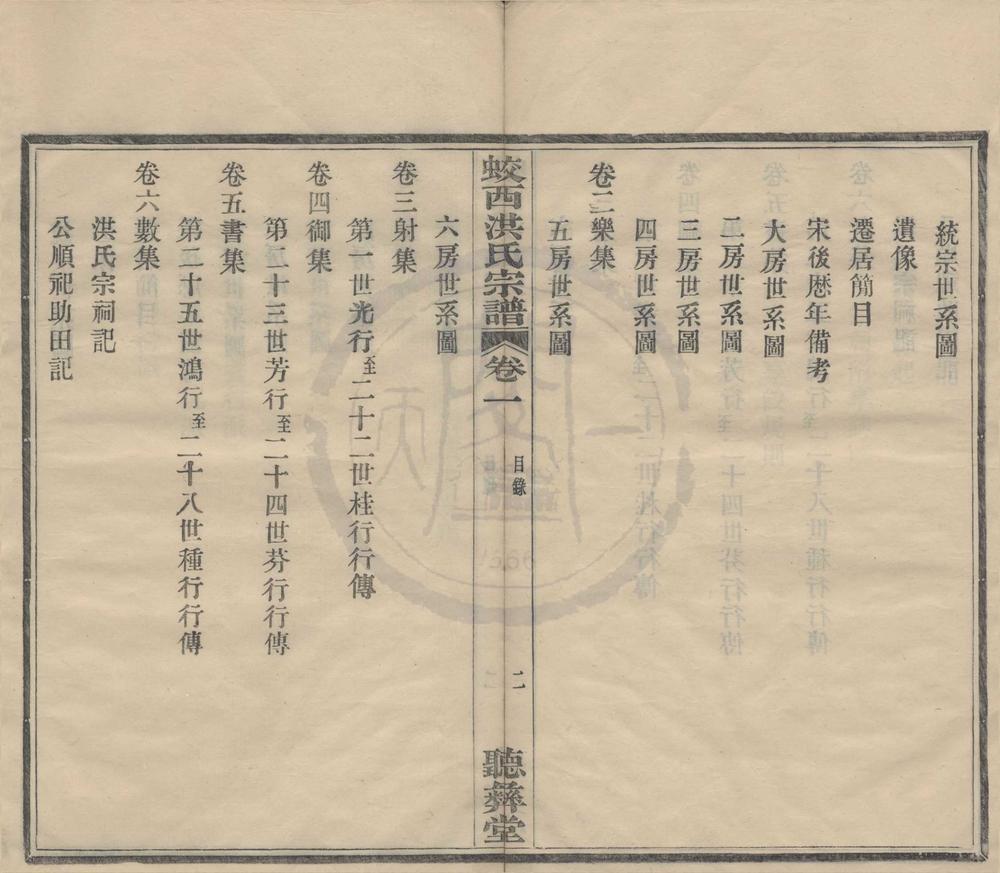 統宗世系圖
遺像
遷居簡目
宋後歷年備考
大房世系圖
二房世系圖
三房世系圖
四房世系圖
卷二樂集
五房世系圖
蛟西洪氏宗譜 卷一 目錄 二 聽彝堂
六房世系圖
卷三射集
第一世光行至二十二世桂行行傳
卷四御集
第二十三世芳行至二十四世芬行行傳
卷五書集
第二十五世鴻行至二十八世種行行傳
卷六數集
洪氏宗祠記
公順祀助田記